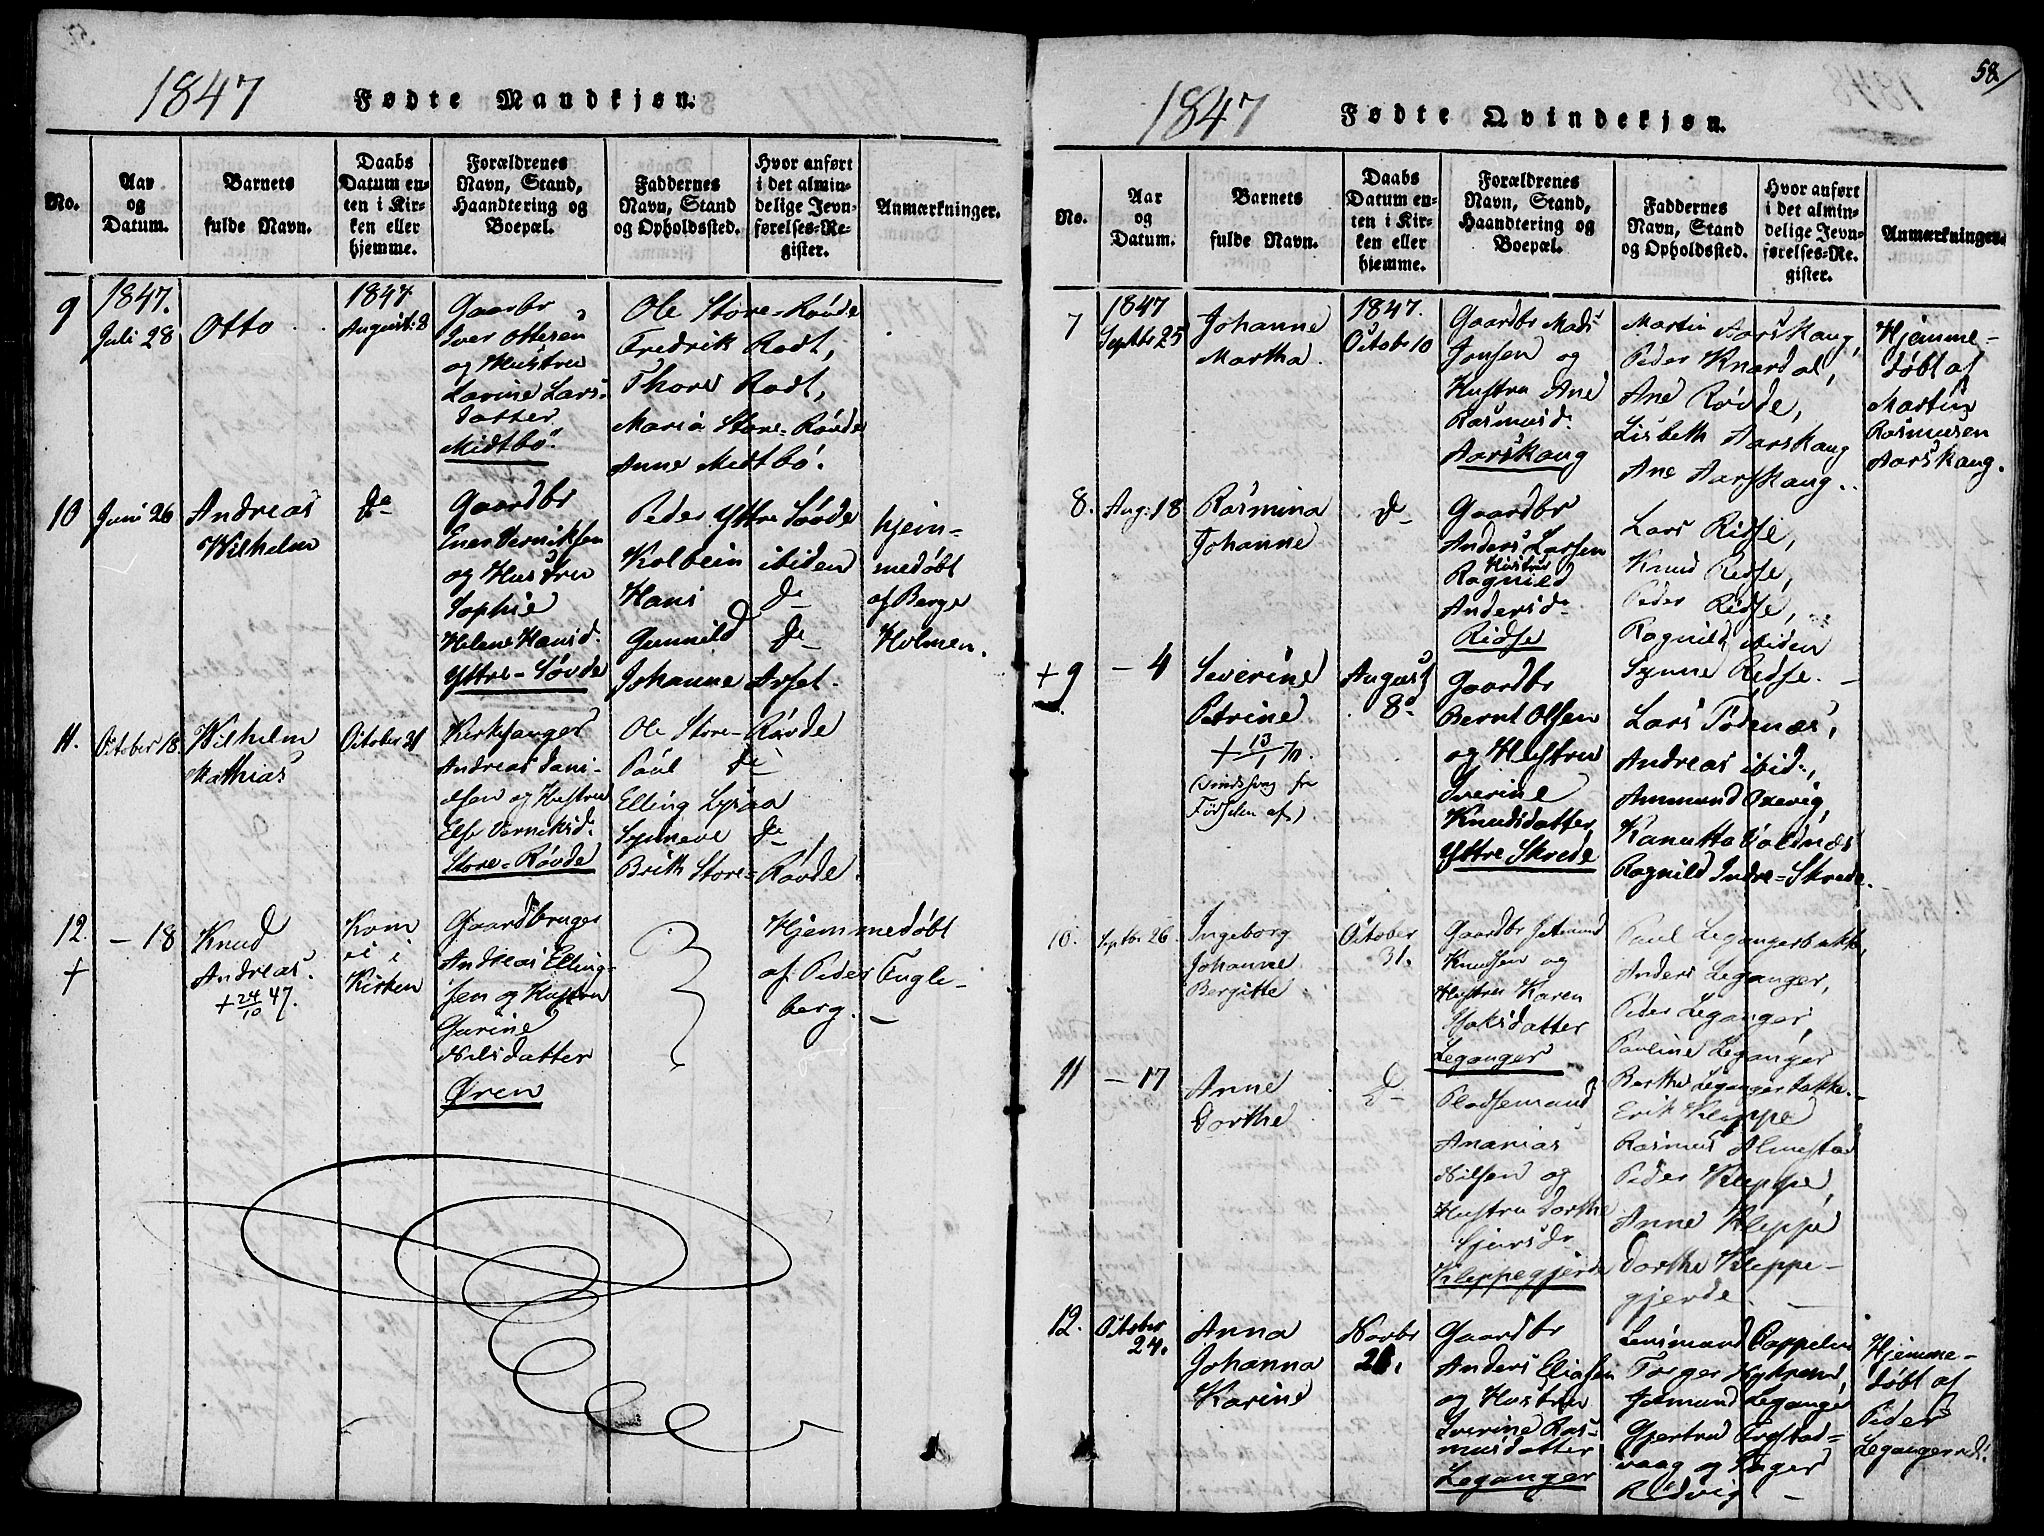 1847
Fødte Mandkjøn.
No.
Aar og Datum.
Barnets fulde Navn.
Daabs Datum enten i Kirken eller hjemme.
Forældrenes Navn, Stand, Haandtering og Boepæl.
Faddernes Navn, Stand og Opholdssted.
Hvor anført i det almindelige Jevnførelses-Register.
Anmærkninger.
9
1847.
Juli 28
Otto
1847
August 8
Gaardbr
Iver Ottesen
og Hustru
Lavine Lars-
datter
Midtbö.
Ole Store-Rövde
Fredrik Rodt,
Thore Rodt,
Maria Store-Rövde
Anne Midtbö.
10
Juni 26
Andreas
Wilhelm
do
Gaardbr
Enes Verniksen
og Hustru
Sophie
Helene Hansd.
Yttre-Sövde
Peder Yttre Sövde
Kolbein ibiden
Hans do
Gunnild do
Johanne Arset.
hjem-
medöbt
af Berge
Holmen.
11.
October 18.
Wilhelm
Mathias
October 31
Kirkesanger
Andreas Dani-
elsen og Hustru
Else Verniksd.
Store-Rövde
Ole Store-Rövde
Paul do
Elling
Synneve do
Brith Store-Rövde.
12.
+
- 18
Knud
Andreas.
+ 24/10 47.
Kom
ei i
Kirken
Gaardbruger
Andreas Elling-
sen og Hustru
Gurine
Nilsdatter
Øren
Hjemmedöbt
af Peder Fugle-
berg. -
58
1847
Fødte Qvindekjøn.
No.
Aar og Datum.
Barnets fulde Navn.
Daabs Datum enten i Kirken eller hjemme.
Forældrenes Navn, Stand, Haandtering og Boepæl.
Faddernes Navn, Stand og Opholdssted.
Hvor anført i det almindelige Jevnførelses-Register.
Anmærkninger.
7
1847
Septbr 25
Johanne
Martha.
1847.
Octobr 10
Gaardbr Mads
Jonsen og
Hustru Ane
Rasmusd.
Aarskaug
Martin Aarskaug,
Peder Knardal,
Ane Rövde,
Lisbeth Aarskaug
Ane Aarskaug.
Hjemme-
döbt af
Martin
Rasmusen
Aarskaug.
8.
Aug. 18
Rasmina
Johanne
do
Gaardbr
Anders Larsen
Hustru
Ragnild
Andersd.
Ridse
Lars Ridse,
Knud Ridse,
Peder Ridse,
Ragnild ibiden
Synne Ridse. -
+ 9
- 4
Severine
Petrine
+ 13/1 70.
(Sindssvag fra
Fødselen af)
August
8.
Gaardbr
Bernt Olsen
og Hustru
Iverine
Knudsdatter
Yttre Skrede
Lars Todenæs,
Andreas ibid.,
Ammund Oxevig,
Kanutta Voldnæs
Ragnild Indre-Skrede.
10.
Septbr 26
Ingeborg
Johanne
Bergitte
October
31.
Gaardbr Jetmund
Knudsen og
Hustru Karen
Leganger
Paul Legangerbakke
Anders Leganger,
Peder Leganger,
Pauline Leganger
Berthe Legangerbakke.
11
- 17
Anne
Dorthe
do
Pladsemand
Ananias
Nilsen og
Hustru Dorthe
Sjursdr
Kleppegjerde
Erik Kleppe
Rasmus Almestad
Peder Kleppe,
Anne Kleppe
Dorthe Kleppe-
gjerde. -
12.
October
24.
Anna
Johanna
Karine
Novbr
28.
Gaardbr
Anders Eliasen
og Hustru
Iverine Ras-
musdatter
Leganger
Lensmand Cappelen
Jetmund Leganger
Gjertrud Frostad-
vaag og Inger
Rødvig. -
Hjemme-
döbt af
Peder